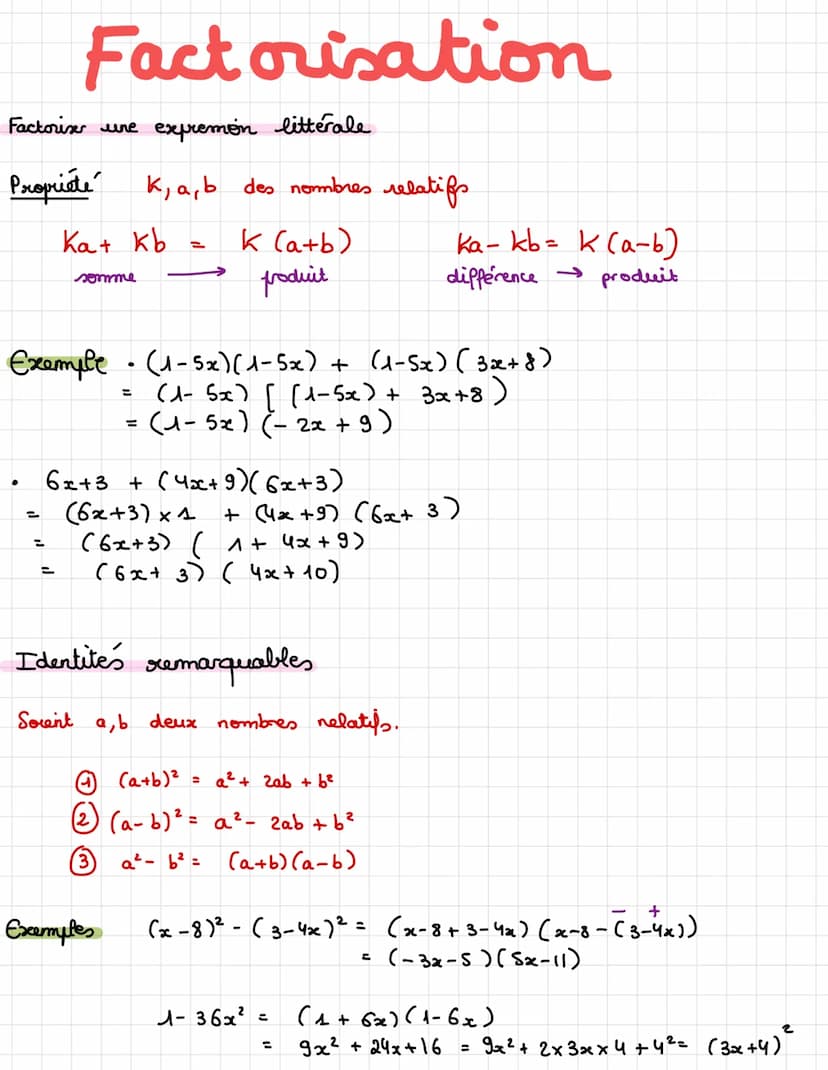 Factorisation
Factoriser une expression littérale
Propriété K, a, b des nombres relatifs
Ka + Kb = K (a+b) Ka - kb = K (a-b)
somme → produit différence → produit
Exemple • (1-5x)(1-5x) + (1-5x)(3x+8)
= (1-5x) [ (1-5x) + 3x+8 )
= (1-5x) (-2x+9)
• 6x+3 + (4x+9)(6x+3)
= (6x+3) x 1 + (4x+9) (6x+3)
= (6x+3) ( 1 + 4x+9)
= (6x+3) ( 4x+10)
Identités remarquables
Soient a,b deux nombres relatifs.
① (a+b)² = a² + 2ab + b²
② (a-b)² = a² - 2ab + b²
③ a² - b² = (a+b)(a-b)
- +
Exemples (x-8)² - (3-4x)² = (x-8+3-4x)(x-8-(3-4x))
= (-3x-5)(5x-11)
1-36x² = (1+6x)(1-6x)
= 9x² + 24x+16 = 9x² + 2x3xx4 + 4² = (3x+4)²